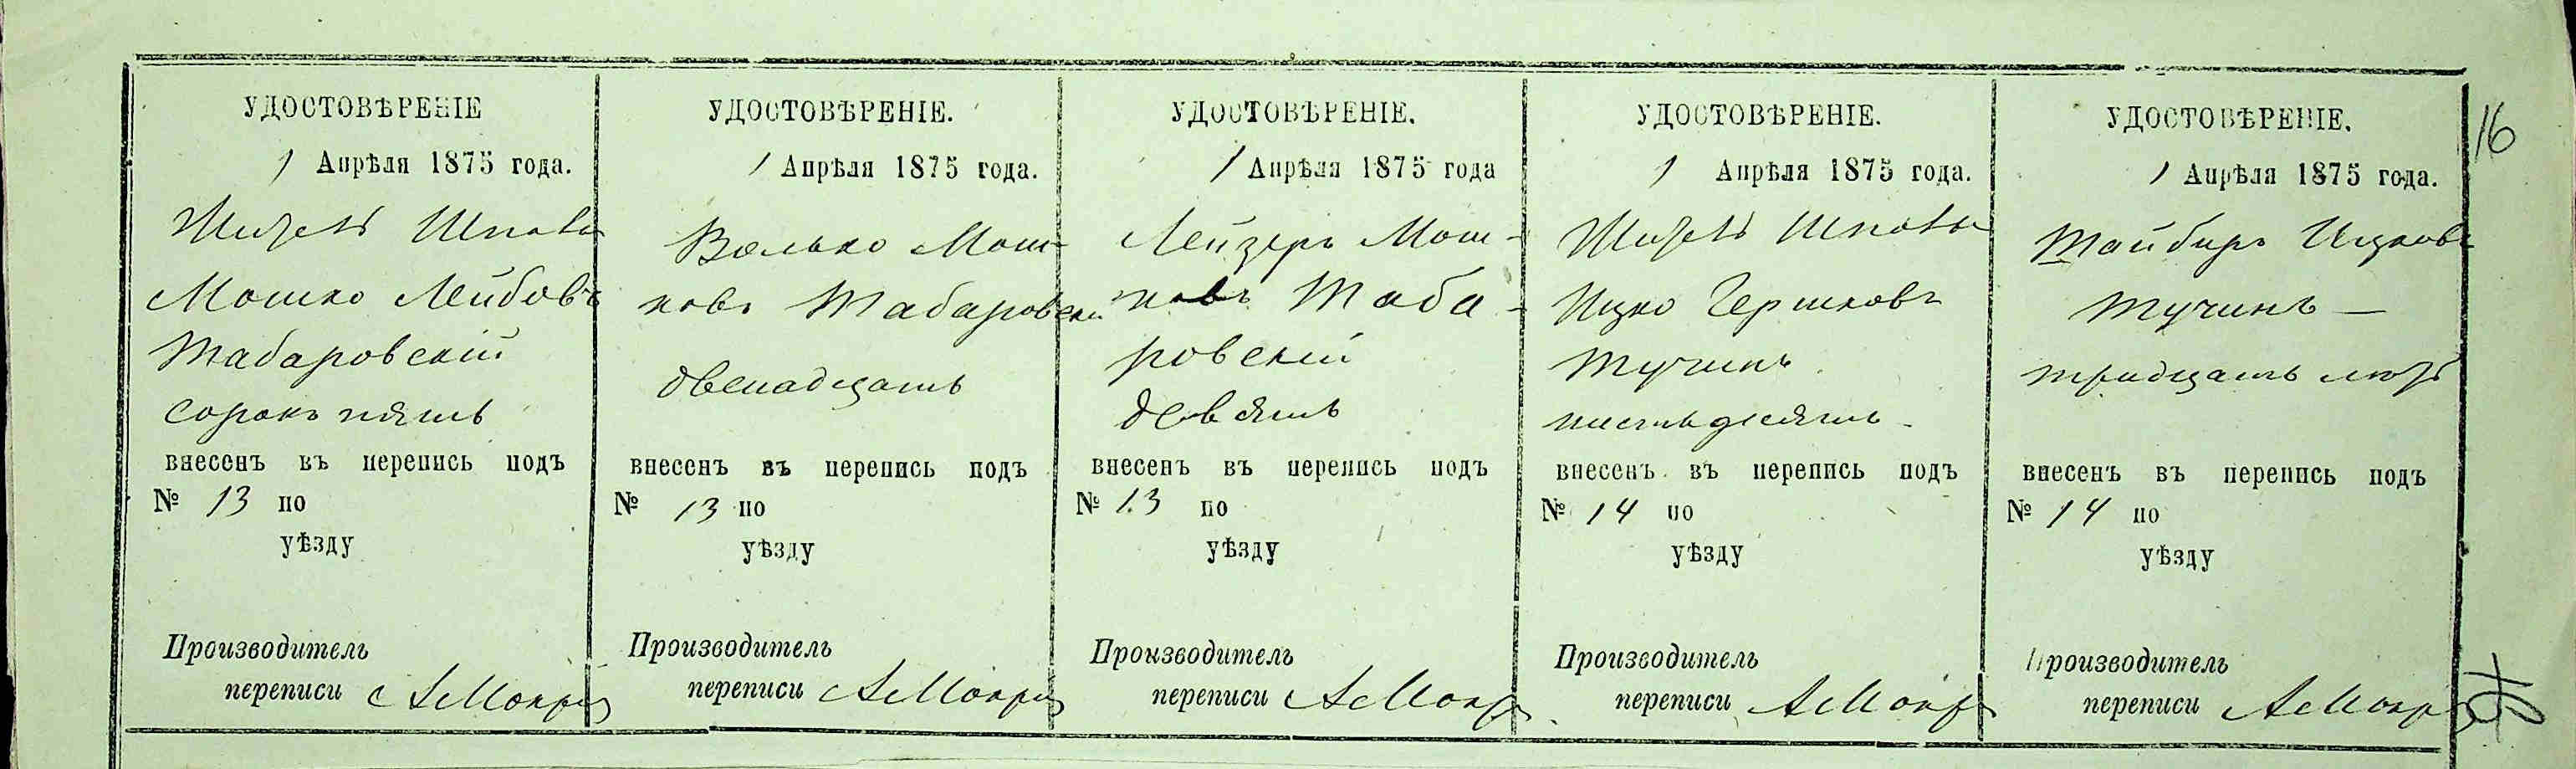 УДОСТОВѢРЕНІЕ
1 Апрѣля 1875 года.
Мошко Лейбовъ
Табаровскій
сорокъ пять
внесенъ въ перепись подъ
№ 13 по
уѣзду
Производитель
переписи
УДОСТОВѢРЕНІЕ.
1 Апрѣля 1875 года.
Волько Мош-
ковъ Табаровскі
двенадцать
внесенъ въ перепись подъ
№ 13 по
уѣзду
Производитель
переписи
УДОСТОВѢРЕНІЕ.
1 Апрѣля 1875 года
Лейзеръ Мош-
ковъ Таба-
ровскій
девять
внесенъ въ перепись подъ
№ 13 по
уѣзду
Производитель
переписи
УДОСТОВѢРЕНІЕ.
1 Апрѣля 1875 года.
Ицко Гершковъ
Тучинъ
шестьдесятъ
внесенъ въ перепись подъ
№ 14 по
уѣзду
Производитель
переписи
УДОСТОВѢРЕНІЕ.
1 Апрѣля 1875 года.
Ицковъ
Тучинъ —
тридцать
внесенъ въ перепись подъ
№ 14 по
уѣзду
Производитель
переписи
16